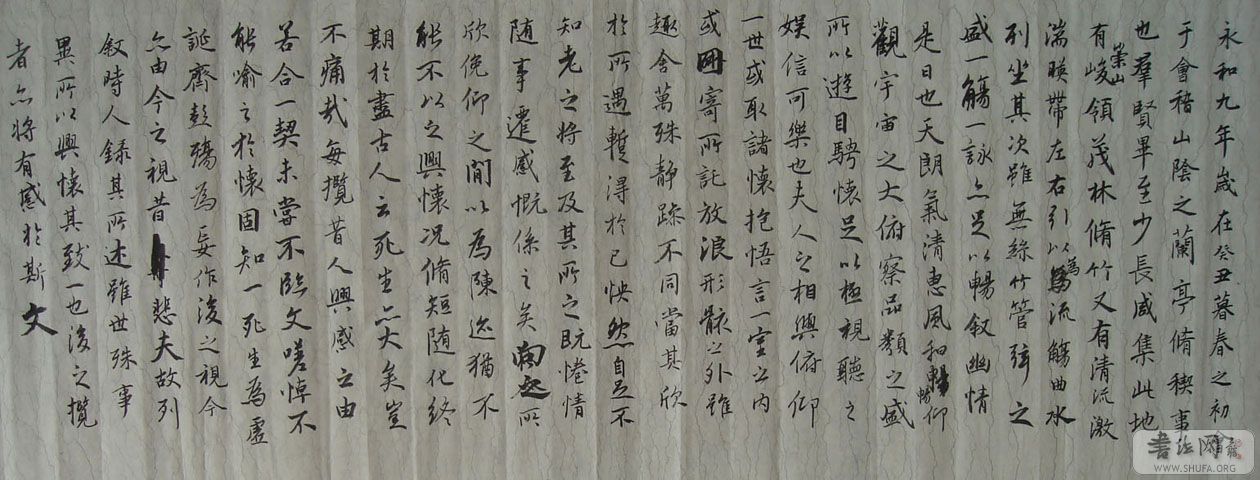 永和九年歲在癸丑暮春之初
于會稽山陰之蘭亭脩稧事
也羣賢畢至少長咸集此地
有崇山峻領茂林脩竹又有清流激
湍暎帶左右引以為流觴曲水
列坐其次雖無絲竹管弦之
盛一觴一詠亦足以暢叙幽情
是日也天朗氣清惠風和暢仰
觀宇宙之大俯察品類之盛
所以遊目騁懷足以極視聽之
娛信可樂也夫人之相與俯仰
一世或取諸懷抱悟言一室之內
或因寄所託放浪形骸之外雖
趣舍萬殊静躁不同當其欣
於所遇暫得於己怏然自足不
知老之將至及其所之既惓情
隨事遷感慨係之矣向之所
欣俛仰之閒以為陳迹猶不
能不以之興懷況脩短隨化終
期於盡古人云死生亦大矣豈
不痛哉每攬昔人興感之由
若合一契未嘗不臨文嗟悼不
能喻之於懷固知一死生為虛
誕齊彭殤為妄作後之視今
亦由今之視昔悲夫故列
叙時人錄其所述雖世殊事
異所以興懷其致一也後之攬
者亦將有感於斯文
書法網
WWW.SHUFA.ORG